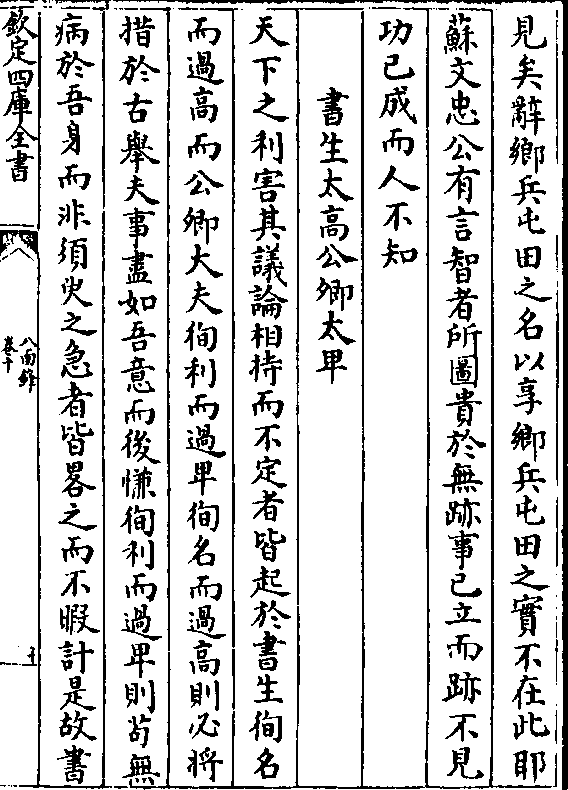 見矣辭鄉兵屯田之名以享鄉兵屯田之實不在此耶
蘇文忠公有言智者所圖貴於無跡事已立而跡不見
功已成而人不知
書生太高公卿太卑
天下之利害其議論相持而不定者皆起於書生徇名
而過高而公卿大夫徇利而過卑徇名而過高則必將
措於古舉夫事盡如吾意而後慊徇利而過卑則苟無
病於吾身而非須臾之急者皆畧之而不暇計是故書
欽定四庫全書
八面鋒
卷十